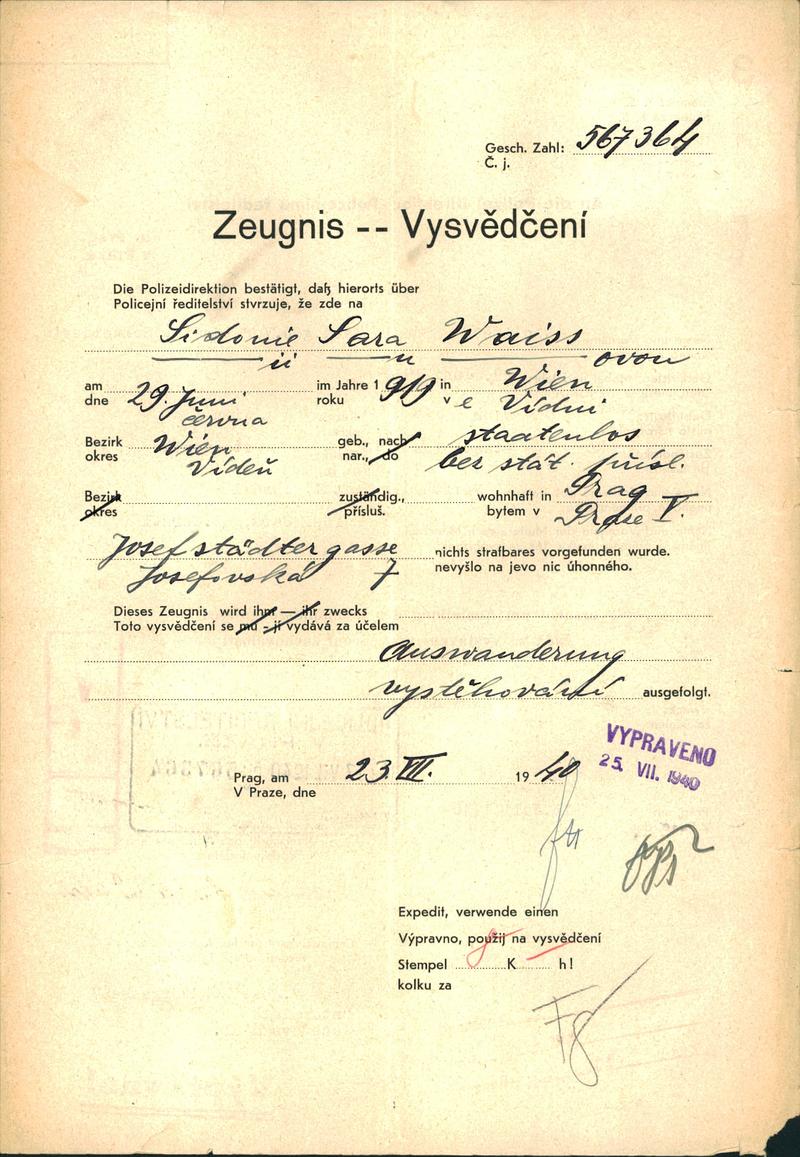 Gesch. Zahl: 567364
Č. j.
Zeugnis -- Vysvědčení
Die Polizeidirektion bestätigt, daß hierorts über
Policejní ředitelství stvrzuje, že zde na
Sidonie Sara Waiss
ii u ovou
am 29. Juni im Jahre 1919 in Wien
dne června roku v e Vídni
Bezirk Wien geb., nach staatenlos
okres Vídeň nar., do bez stát. přísl.
Bezirk zuständig., wohnhaft in Prag
okres přísluš. bytem v Praze V.
Josefstädtergasse nichts strafbares vorgefunden wurde.
Josefovská 7 nevyšlo na jevo nic úhonného.
Dieses Zeugnis wird ihm — ihr zwecks
Toto vysvědčení se mu - jí vydává za účelem
Auswanderung
vystěhování ausgefolgt.
VYPRAVENO
25. VII. 1940
Prag, am 23. VII. 1940
V Praze, dne
Expedit, verwende einen
Výpravno, použij na vysvědčení
Stempel K h!
kolku za